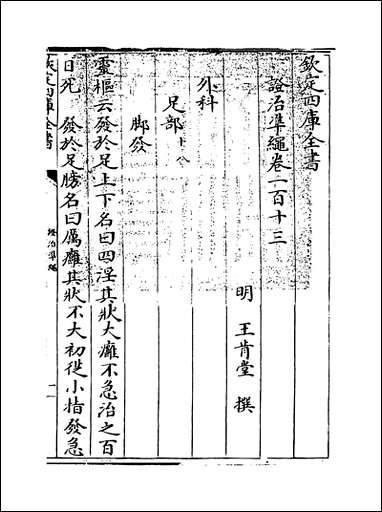 欽定四庫全書
證治準繩卷一百十三
明 王肯堂 撰
外科
足部
脚發
靈樞云發於足上下名曰四淫其狀大癰不急治之百
日死 發於足䏶名曰厲癰其狀不大初從小指發急
欽定四庫全書
證治準繩